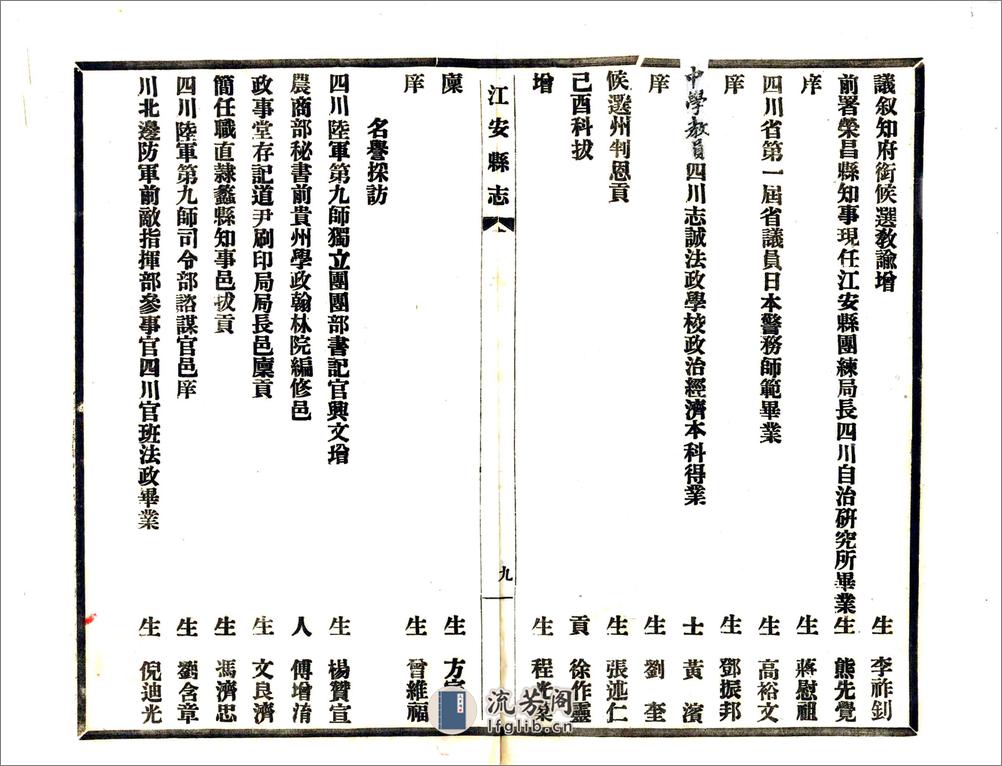 議叙知府銜候選教諭增生李祚釗
前署榮昌縣知事現任江安縣團練局長四川自治研究所畢業生熊先覺
庠生蔣慰祖
四川省第一屆省議員日本警務師範畢業生高裕文
庠生鄧振邦
中學教員四川志誠法政學校政治經濟本科得業士黃濱
庠生劉奎
候選州判恩貢生張述仁
己酉科拔貢徐作靈
增生程
江安縣志
九
廩生方
庠生曾維福
名譽採訪
四川陸軍第九師獨立團團部書記官興文增生楊贊宣
農商部秘書前貴州學政翰林院編修邑人傅增淯
政事堂存記道尹刷印局局長邑廩貢生文良濟
簡任職直隸蠡縣知事邑拔貢生馮濟忠
四川陸軍第九師司令部諮謀官邑庠生劉含章
川北邊防軍前敵指揮部參事官四川官班法政畢業生倪迪光
流芳阁
lfglib.cn